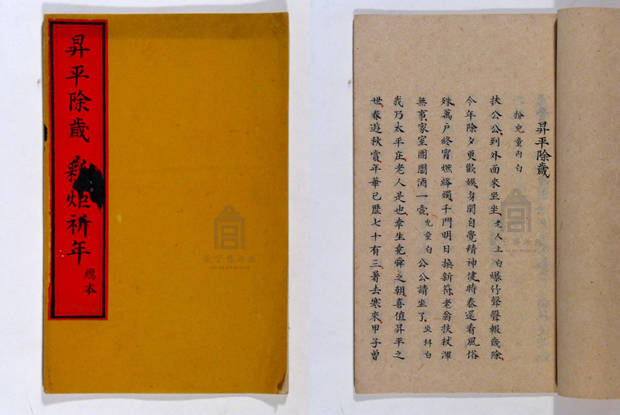 昇平除歲 彩炬祈年 總本
昇平除歲
扮兒童內白
扶公公到外面來坐坐老人上白爆竹聲聲報歲除
今年除夕更歡娛身閒自覺精神健時泰還看風俗
殊萬戶終宵燃絳蠋千門明日換新符老翁扶杖渾
無事家室團圞酒一壺兒童白公公請坐了坐科白
我乃太平庄老人是也幸生堯舜之朝喜值昇平之
世春遊秋賞年華已歷七十有三暑去寒來甲子曾